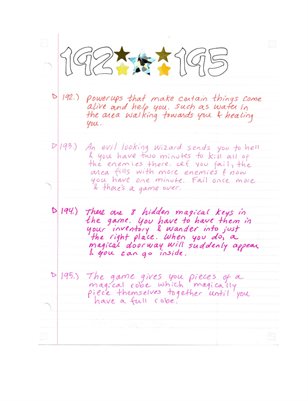 192 195
▷ 192.) Powerups that make certain things come
alive and help you. Such as water in
the area walking towards you & healing
you.
▷ 193.) An evil looking wizard sends you to hell
& you have two minutes to kill all of
the enemies there. If you fail, the
area fills with more enemies & now
you have one minute. Fail once more
& there's a game over.
▷ 194.) There are 8 hidden magical keys in
the game. You have to have them in
your inventory & wander into just
the right place. When you do, a
magical doorway will suddenly appear
& you can go inside.
▷ 195.) The game gives you pieces of a
magical robe which magically
piece themselves together until you
have a full robe.